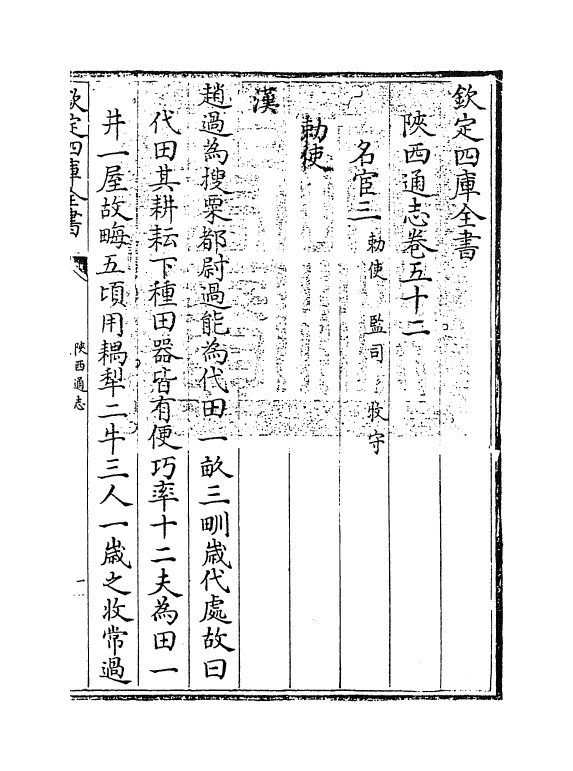 欽定四庫全書
陝西通志卷五十二
名宦三 勅使 監司 牧守
勅使
漢
趙過為搜粟都尉過能為代田一畝三甽歲代處故曰
代田其耕耘下種田器皆有便巧率十二夫為田一
井一屋故畮五頃用耦犁二牛三人一歲之收常過
欽定四庫全書
陝西通志
一